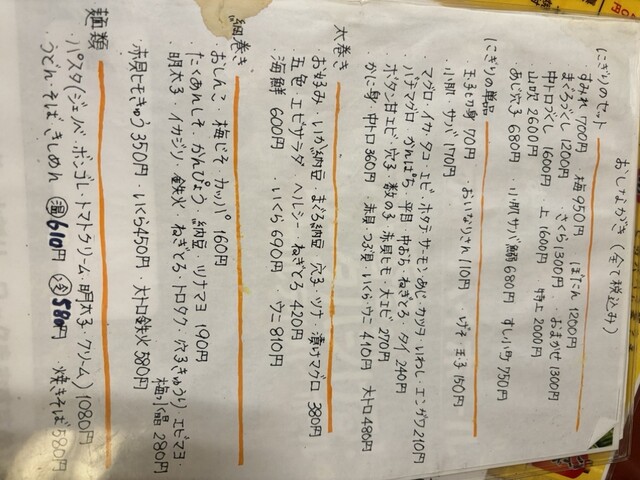 おしながき(全て税込み)
にぎりのセット
すみれ 700円 梅 950円 ぼたん 1200円
まぐろづくし 1200円 さくら 1300円 おまかせ 1300円
中トロづくし 1600円 上 1600円 特上 2000円
山吹 2600円
あじ穴子 680円 小肌サバ鰯 680円 すし小町 750円
にぎりの単品
玉子切身 70円 おいなりさん 110円 げそ・玉子 150円
小肌・サバ 170円
マグロ・イカ・タコ・エビ・ホタテ・サーモン・あじ・カツヲ・いわし・エンガワ 210円
ハチマグロ・かんぱち・平目・中おち・ねぎとろ・タイ 240円
ボタン甘エビ・穴子・数の子・赤貝ヒモ・大エビ 270円
かに身・中トロ 360円 赤貝・つぶ貝・いくら・ウニ 410円 大トロ 480円
太巻き
お好み・いか納豆・まぐろ納豆・穴子・ツナ・漬けマグロ 380円
五色・エビサラダ・ヘルシー・ねぎとろ 420円
海鮮 600円 いくら 690円 ウニ 810円
細巻き
おしんこ・梅じそ・カッパ 160円
たくあんしそ・かんぴょう・納豆・ツナマヨ 190円
明太子・イカジソ・鉄火・ねぎとろ・トロタク・穴子きゅうり・エビマヨ・
梅水晶 280円
赤貝ヒモきゅう 350円 いくら 450円 大トロ鉄火 580円
麺類
パスタ(ジェノベ・ボンゴレ・トマトクリーム・明太子・クリーム) 1080円
うどん・そば・きしめん 温 610円 冷 580円 焼きそば 580円